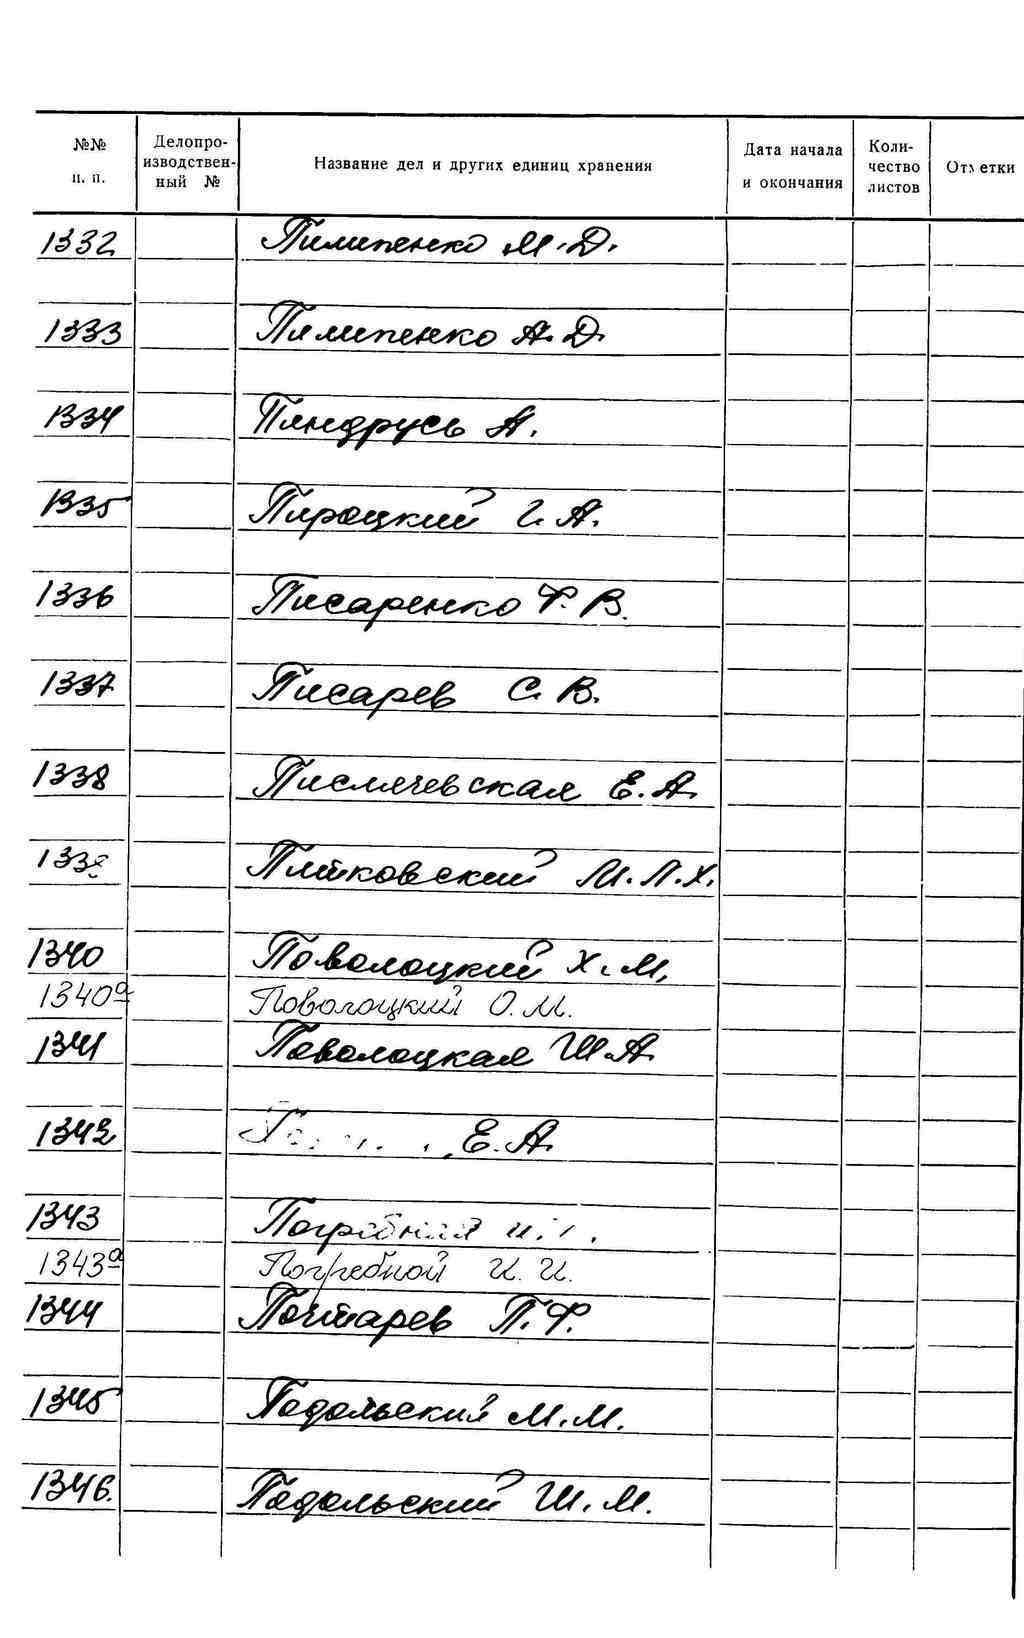 №№ п. п. Делопроизводственный № Название дел и других единиц хранения Дата начала и окончания Количество листов Отметки
1332 Пилипенко М. Д.
1333 Пилипенко А. Д.
1334 Пиндрусь А.
1335 Пироцкий Г. А.
1336 Писаренко Ф. В.
1337 Писарев С. В.
1338 Писмячевская Е. А.
1339 Питковский М. Л. Х.
1340 Поволоцкий Х. М.
1340а Поволоцкий О. М.
1341 Поволоцкая Ш. А.
1342 Е. А.
1343
1343а Погребной И. И.
1344 Почтарев П. Ф.
1345 Подольский М. М.
1346. Подольский Ш. М.